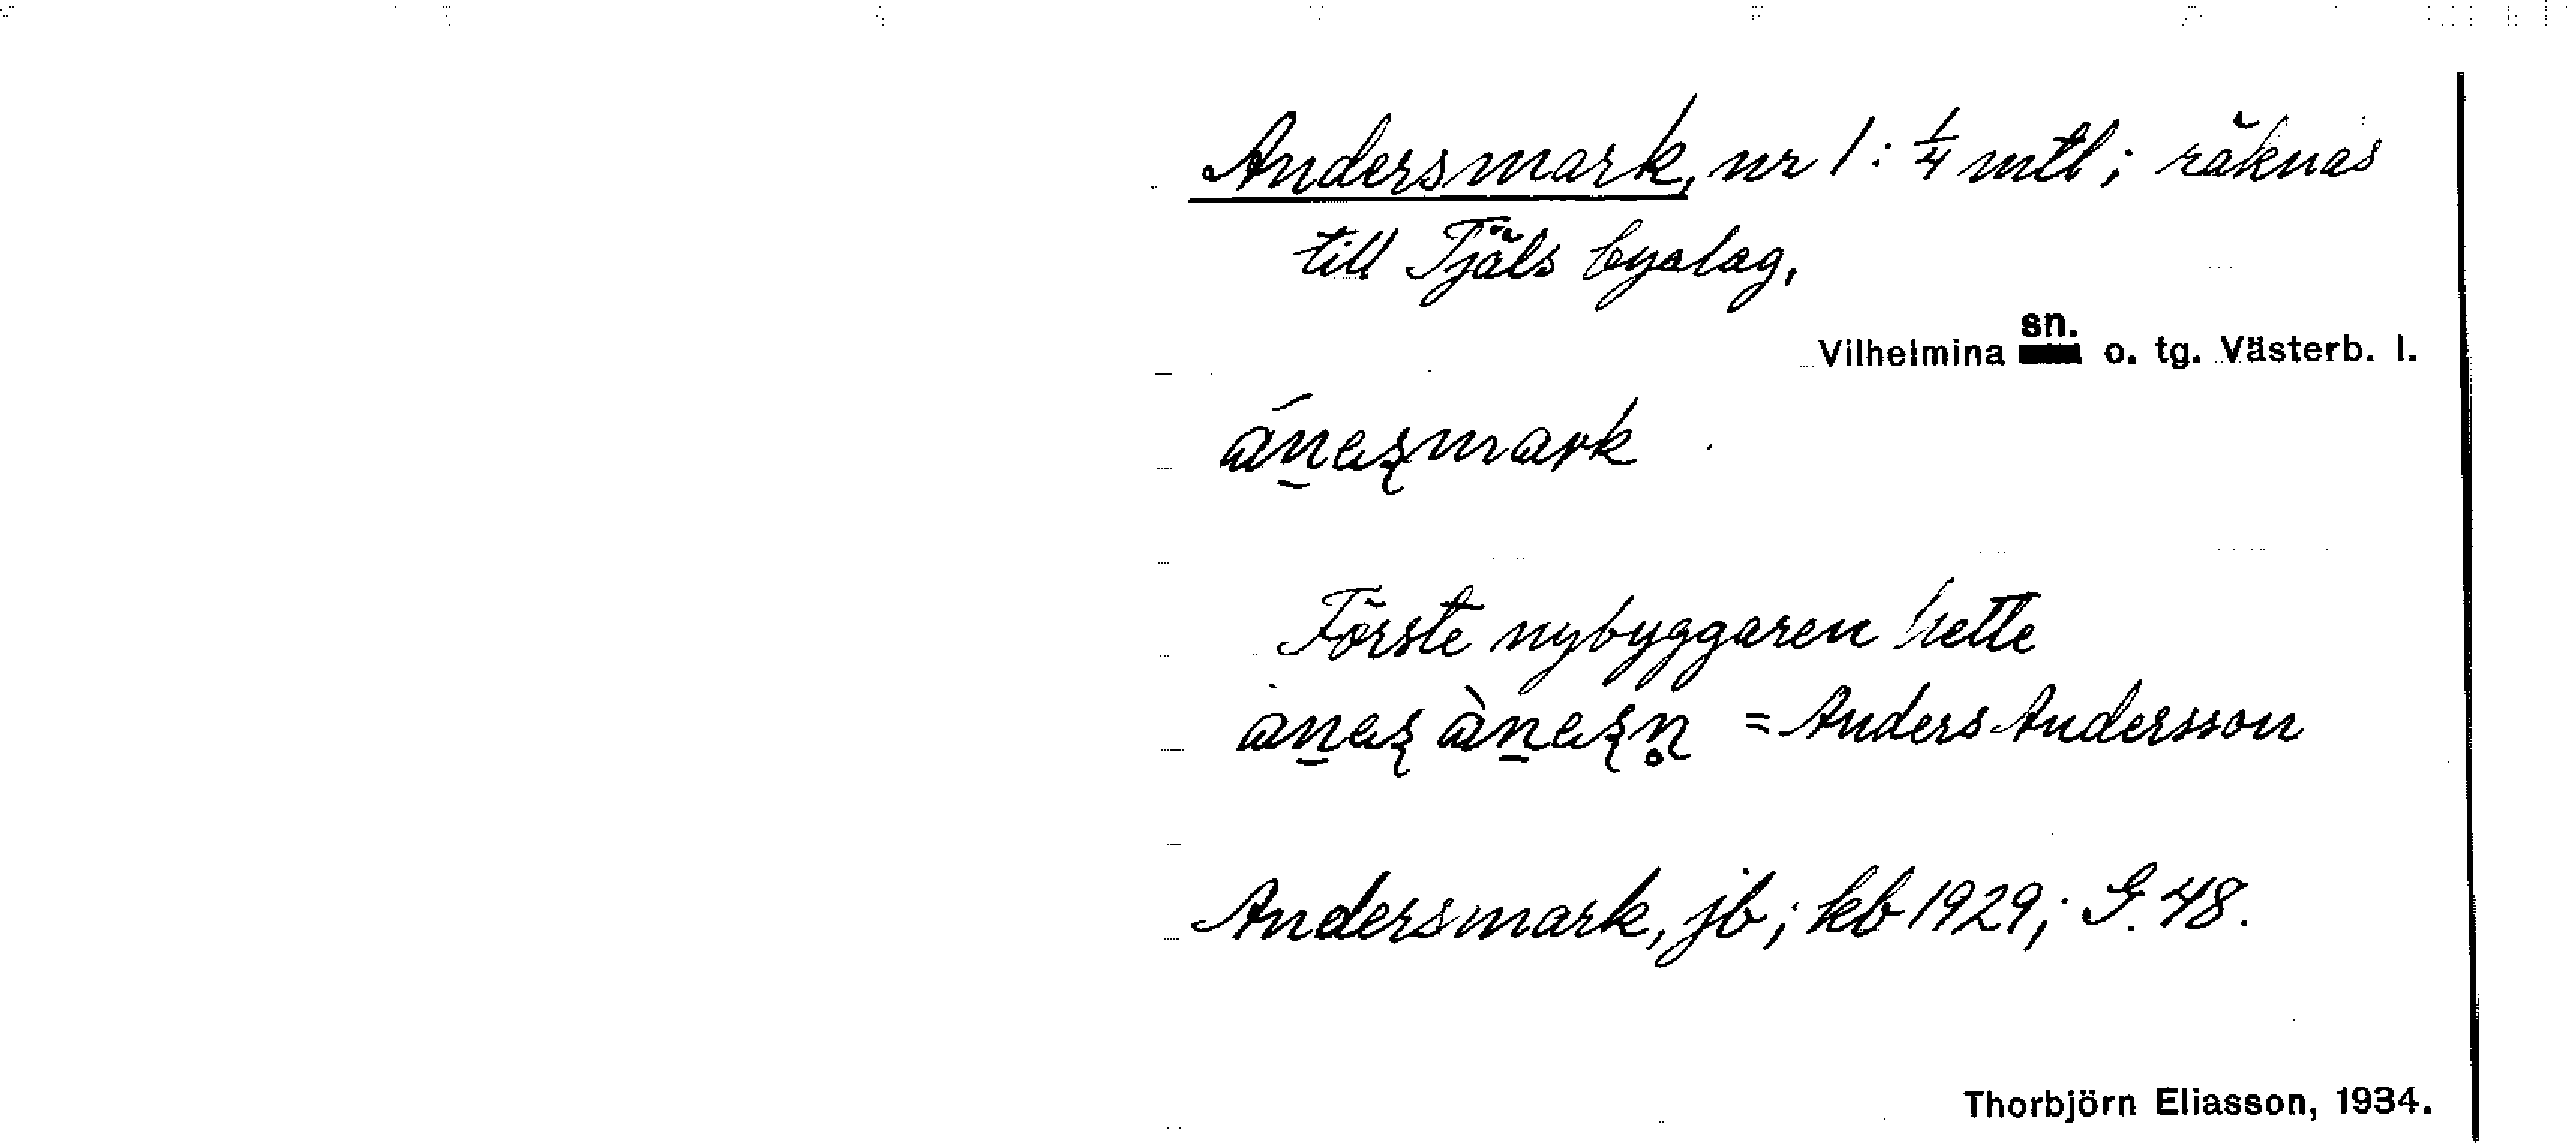 Andersmark, nr 1: ¼ mtl; räknas
till Tjäls byalag,
Vilhelmina sn. o. tg. Västerb. l.
áṉaʂmark
Förste nybyggaren hette
aṉaʂ àṉaʂn̥ = Anders Andersson
Andersmark, jb; kb 1929; G. 48.
Thorbjörn Eliasson, 1934.